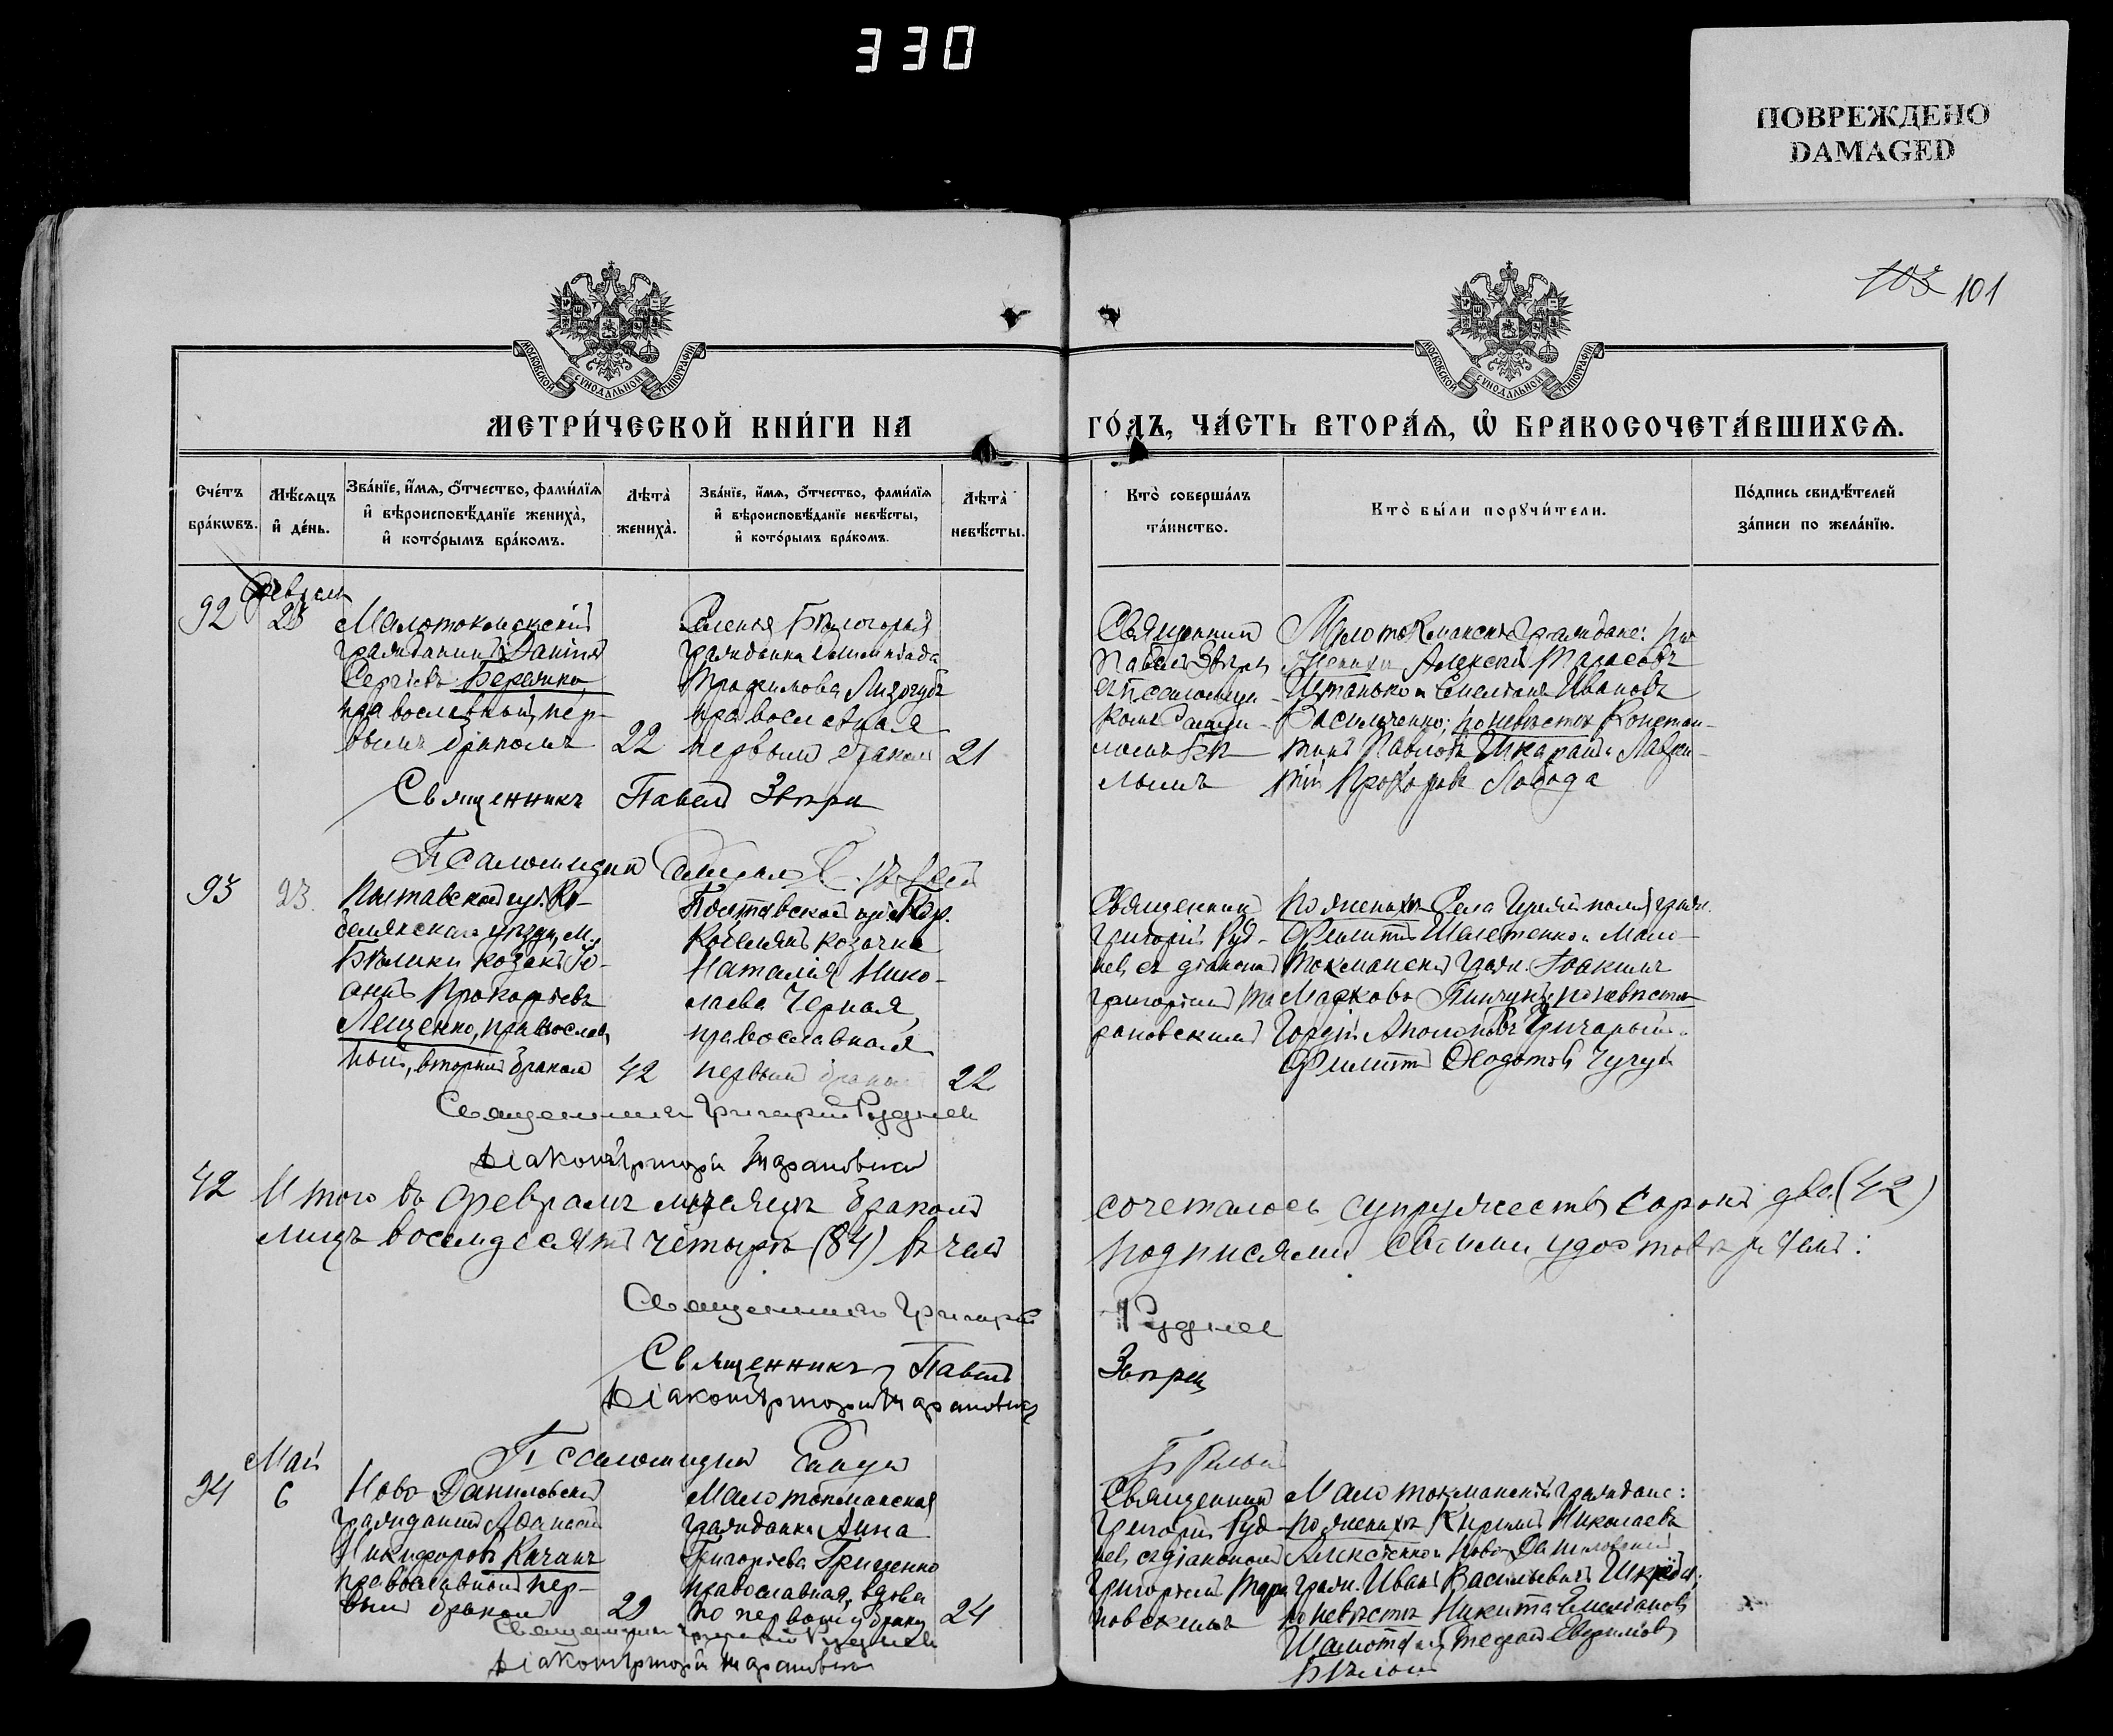 330
ПОВРЕЖДЕНО
DAMAGED
103 101
МОСКОВСКОЙ СѴНОДАЛЬНОЙ ТИПОГРАФІИ
МОСКОВСКОЙ СѴНОДАЛЬНОЙ ТИПОГРАФІИ
МЕТРИ́ЧЕСКОЙ КНИ́ГИ НА
ГО́ДЪ, ЧА́СТЬ ВТОРА́Я, Ѡ҆ БРАКОСОЧЕТА́ВШИХСЯ.
Сче́тъ
бра́кѡвъ.
Мѣ́сяцъ
и҆ де́нь.
Зва́нїе, и҆́мя, о҆́тчество, фами́лїя
и҆ вѣроисповѣ́данїе жениха̀,
и҆ кото́рымъ бра́комъ.
Лѣта̀
жениха̀.
Зва́нїе, и҆́мя, о҆́тчество, фами́лїя
и҆ вѣроисповѣ́данїе невѣ́сты,
и҆ кото́рымъ бра́комъ.
Лѣта̀
невѣ́сты.
Кто̀ соверша́лъ
та́инство.
Кто̀ бы́ли порꙋчи́тели.
По́дпись свидѣ́телей
за́писи по жела́нїю.
Февраль
92
Малотокмакскій
гражданинъ Даніилъ
Сергіевъ
православный, пер-
вымъ бракомъ 22
Селенія Бѣлогорья
гражданка
Трофимова Лизогубъ
православная
первымъ бракомъ 21
Священникъ
Павелъ Звѣрев
съ псаломщи-
комъ
Бѣ-
лымъ
Малотокмакскіе граждане: по
женихѣ Алексѣй Тарасовъ
и Емеліанъ Ивановъ
Василенко; по невѣстѣ Констан-
тинъ Павловъ
Прохоровъ Лобода
Священникъ Павелъ
Псаломщикъ
93 23.
Полтавской губ. Ко-
белякскаго уѣзда, м.
Бѣлики козакъ Іо-
аннъ Прокофьевъ
Лещенко, православ
ный, вторымъ бракомъ 42
Полтавской губ. гор.
Кобелякъ козачка
Наталія Нико-
лаева Черная,
православная
первымъ бракомъ 22
Священникъ
Григорій Руд-
нев съ діакономъ
Григоріемъ Та
рановскимъ
по женихѣ Села Гуляйполя гражд.
Филиппъ и Мало-
токмакскій гражд. Іоакимъ
Марковъ по невѣстѣ
Гордій
Филиппъ Ѳедотовъ Чугуй
Священникъ Григорій Руднев
Діаконъ Григорій Тарановскій
42 Итого въ Февралѣ мѣсяцѣ бракомъ
сочеталось супружествъ сорокъ два (42)
лицъ восемдесятъ четыре (84) въ чемъ
подписями своими удостовѣряемъ:
Священникъ Григорій
Руднев
Священникъ Павелъ
Діаконъ Григорій Тарановскій
Псаломщикъ
Бѣлый
Май
94 6
Ново-Даниловскій
гражданинъ Аѳанасій
Никифоровъ Качанъ
православный, пер-
вымъ бракомъ 29
Малотокмакская
гражданка Анна
Григоріева Грищенко
православная, вдова
по первому браку 24
Священникъ
Григорій Руд-
нев съ діакономъ
Григоріемъ Тара
новскимъ
Мало токмакскій граждане:
по женихѣ Кириллъ Николаевъ
Алексѣенко и Ново-Даниловскій
гражд. Иванъ Васильевъ
по невѣстѣ Никита Емеліановъ
Бѣлый
Священникъ Григорій Руднев
Діаконъ Григорій Тарановскій